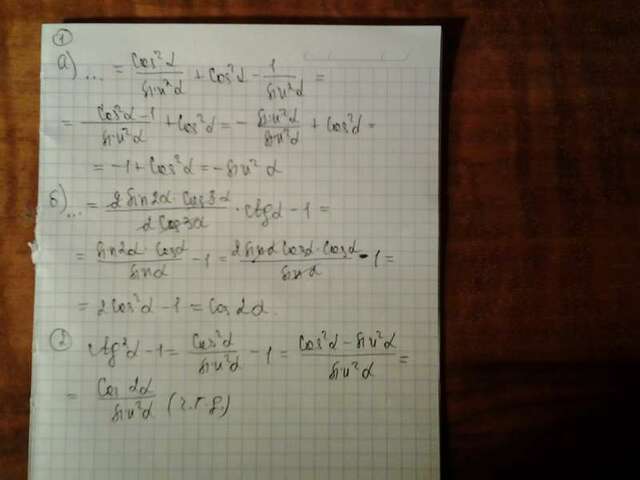 1
а) ... = cos²α/sin²α + cos²α - 1/sin²α =
= (cos²α - 1)/sin²α + cos²α = - sin²α/sin²α + cos²α =
= -1 + cos²α = - sin²α
б) ... = (2 sin2α · cos3α)/(2 cos3α) · ctgα - 1 =
= (sin2α · cosα)/sinα - 1 = (2 sinα cosα · cosα)/sinα - 1 =
= 2cos²α - 1 = cos2α.
2 ctg²α - 1 = cos²α/sin²α - 1 = (cos²α - sin²α)/sin²α =
= cos2α/sin²α (ч.т.д.)